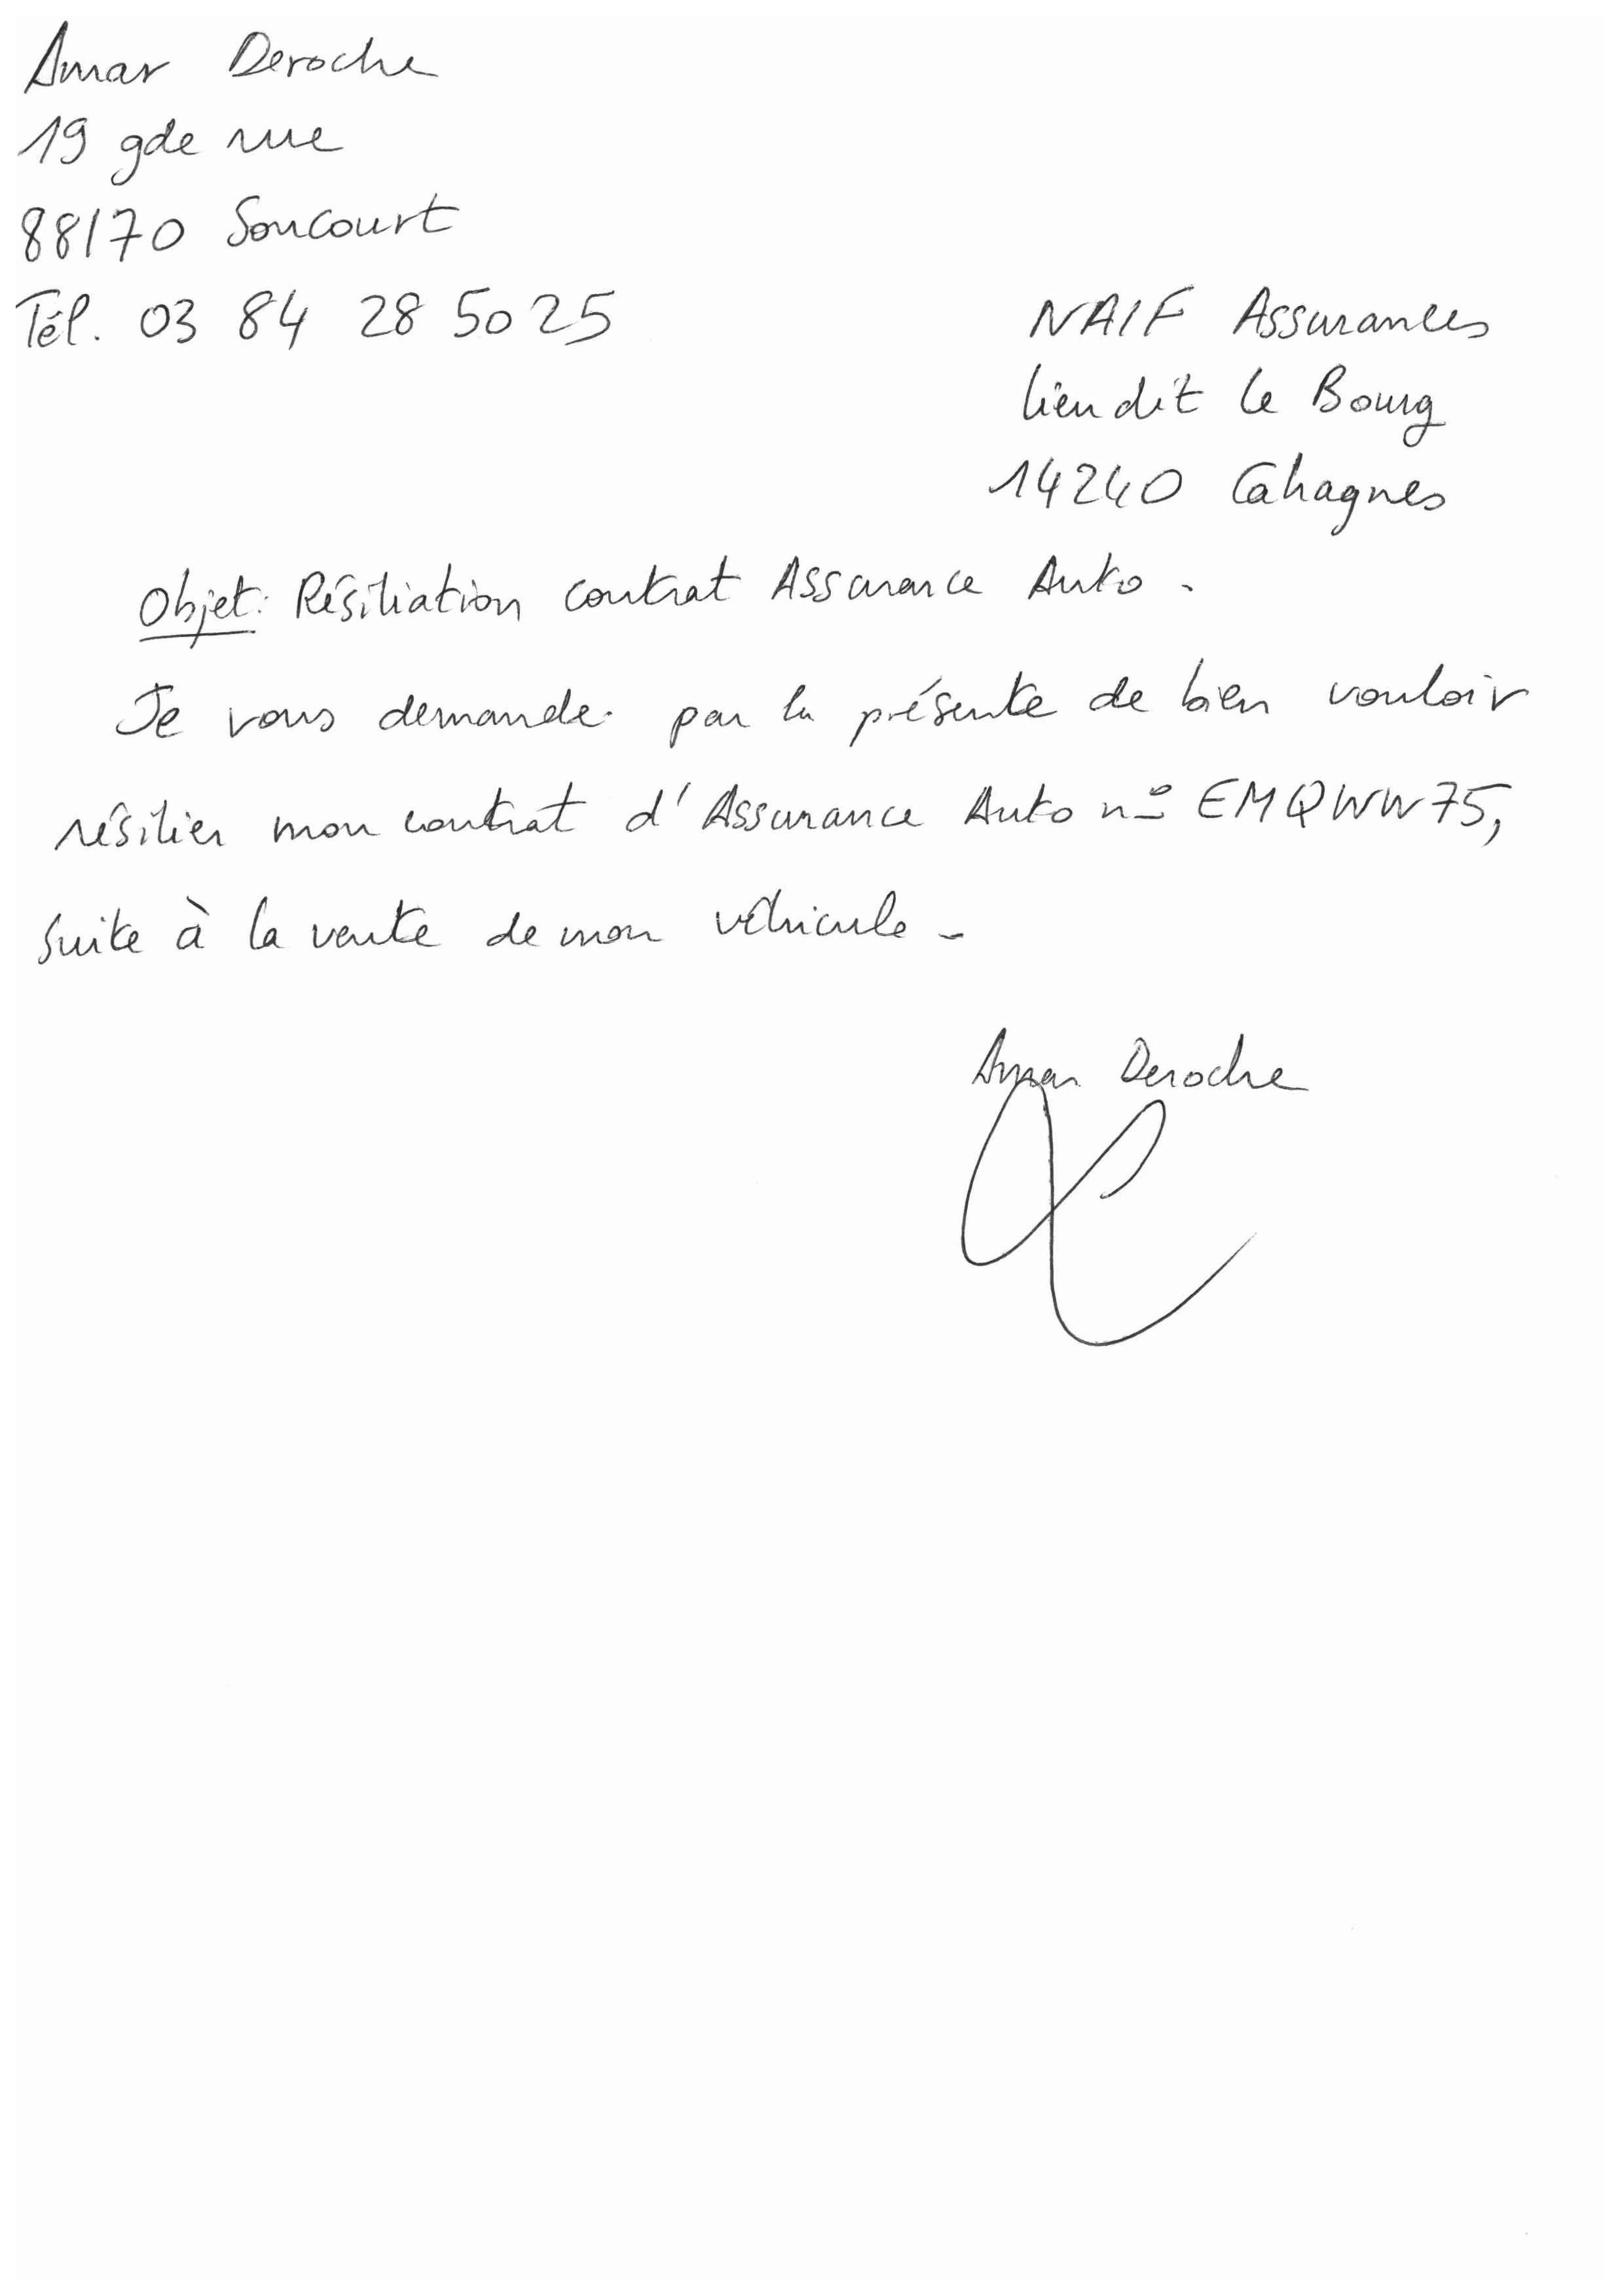 Amar Deroche
19 gde rue
88170 Soncourt
Tél. 03 84 28 50 25
NAIF Assurances
lieu dit le Bourg
14240 Cahagnes
Objet: Résiliation contrat Assurance Auto.
Je vous demande par la présente de bien vouloir
résilier mon contrat d'Assurance Auto n° EMQWW75,
suite à la vente de mon véhicule.
Amar Deroche